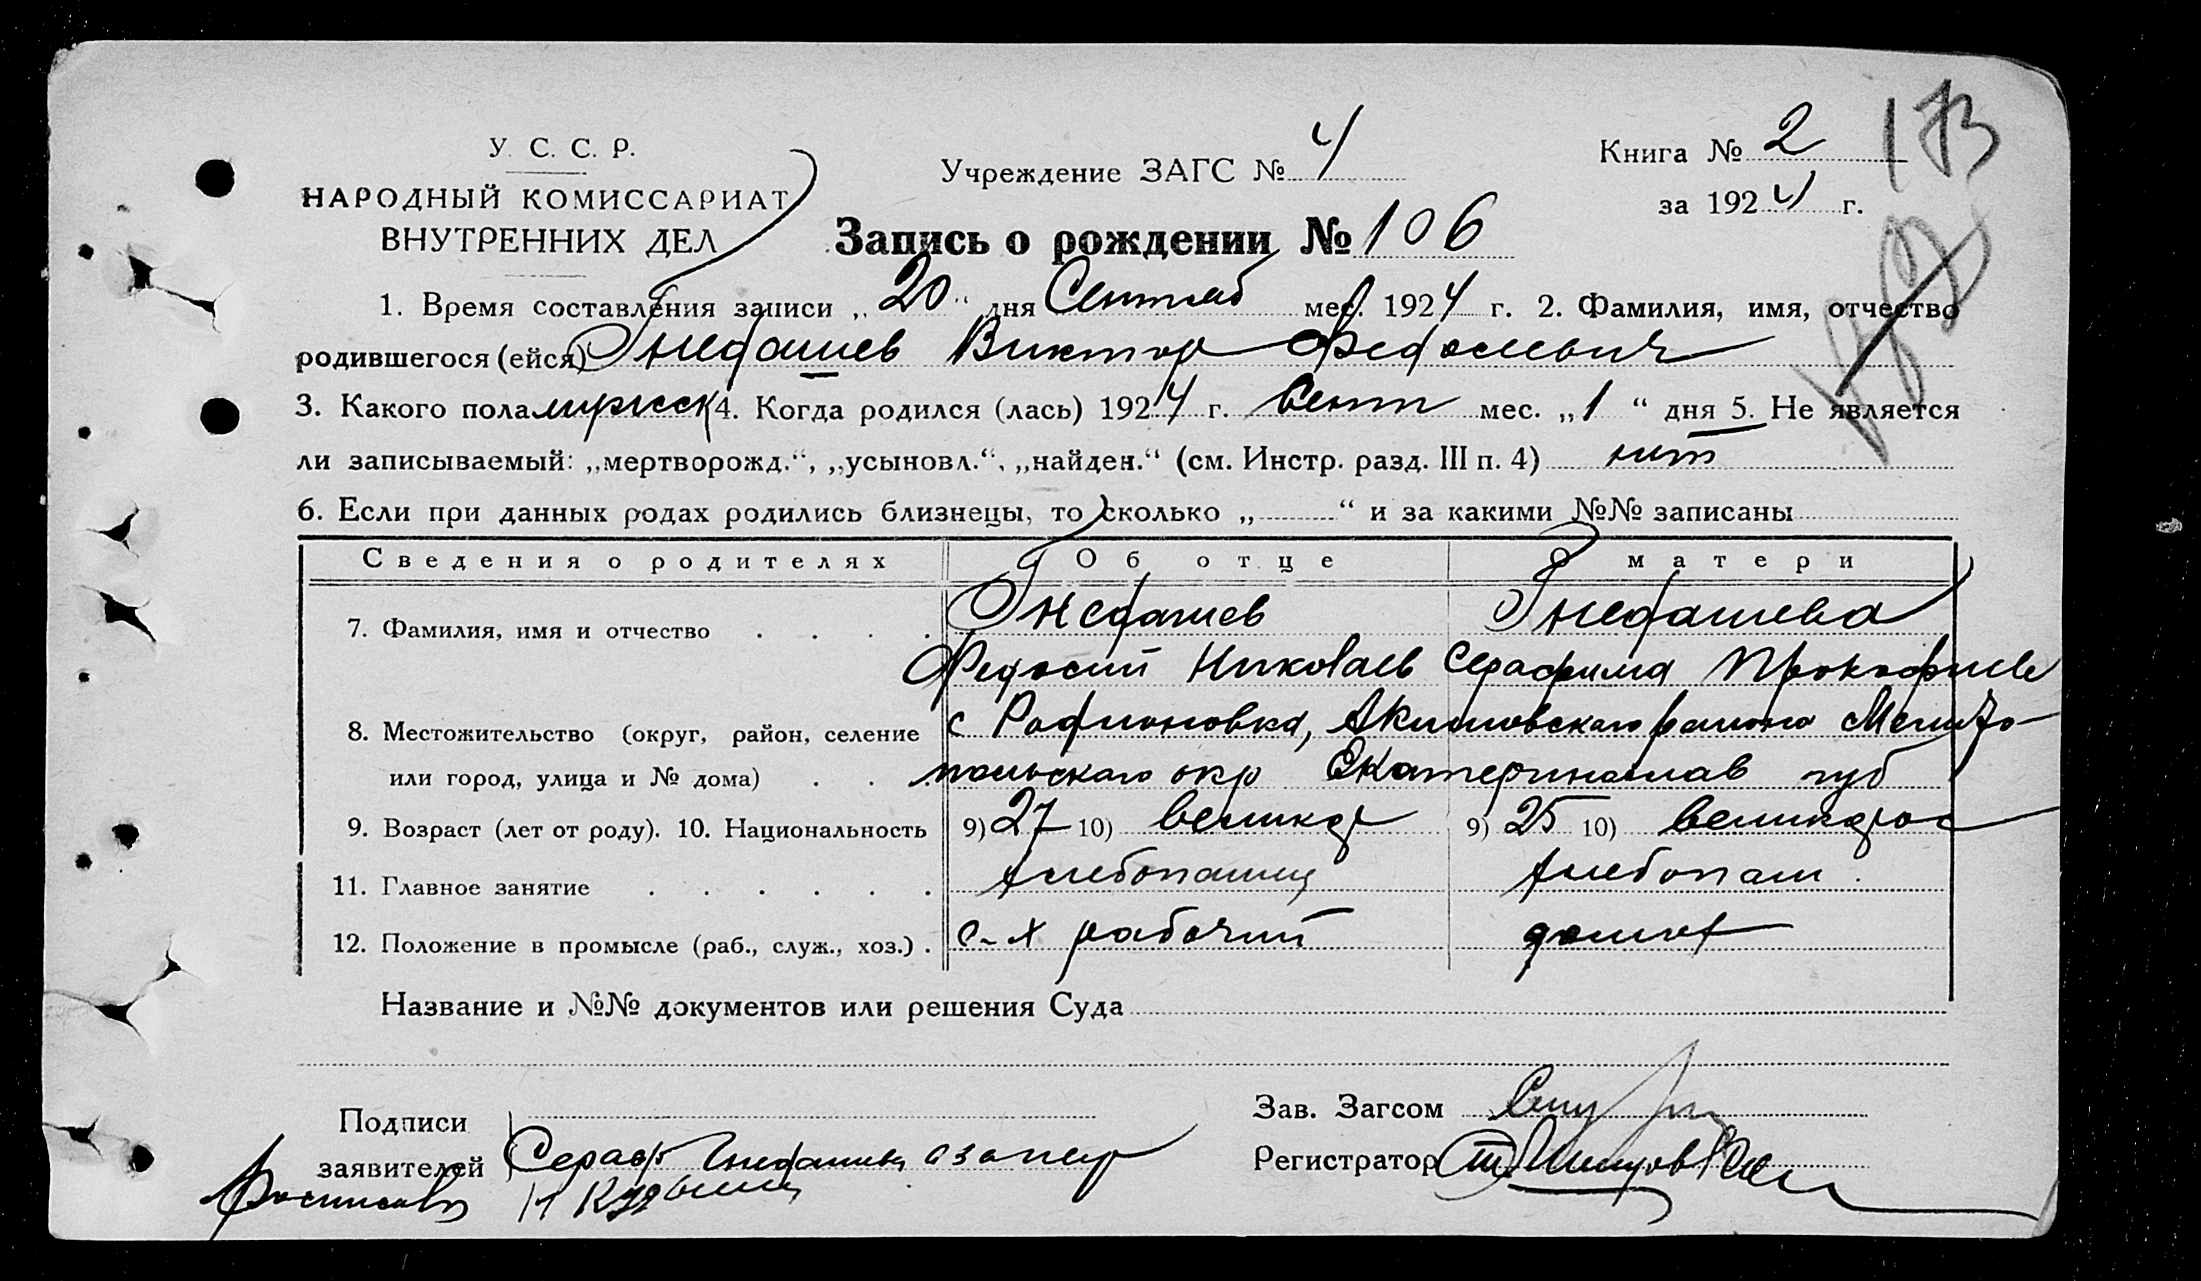 У. С. С. Р.
НАРОДНЫЙ КОМИССАРИАТ
ВНУТРЕННИХ ДЕЛ
Учреждение ЗАГС № 4
Книга № 2
173
за 1924 г.
Запись о рождении № 106
1. Время составления записи „20“ дня Сентяб мес. 1924 г. 2. Фамилия, имя, отчество
родившегося (ейся) Гнедашев Виктор Федосевич
3. Какого пола мужск 4. Когда родился (лась) 1924 г. Сент мес. „1“ дня 5. Не является
ли записываемый: „мертворожд.“, „усыновл.“, „найден.“ (см. Инстр. разд. III п. 4) нет
6. Если при данных родах родились близнецы, то сколько „ “ и за какими №№ записаны
Сведения о родителях Об отце О матери
7. Фамилия, имя и отчество Гнедашев Гнедашева
Федосий Николаев Серафима Прокофиев
8. Местожительство (округ, район, селение с Родионовка, Акимовскаго района Мелито-
или город, улица и № дома) польскаго окр Екатеринослав губ
9. Возраст (лет от роду). 10. Национальность 9) 27 10) великор 9) 25 10) великорос
11. Главное занятие хлебопашец хлебопаш.
12. Положение в промысле (раб., служ., хоз.) с-х рабочий домох
Название и №№ документов или решения Суда
Подписи
заявителей Сераф Гнедашева а за нея
расписався Н
Зав. Загсом
Регистратор